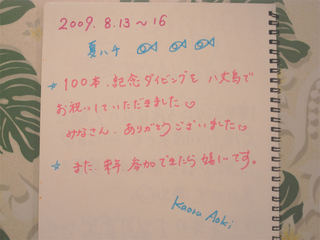 2009. 8.13～16
夏八千
☆ 100本、紀念ダイビングを 八丈島で
お祝いしていただきました♡
みなさん、ありがとうございました♡
☆ また、是非 参加できたら 嬉しいです。
Kaoru Aoki